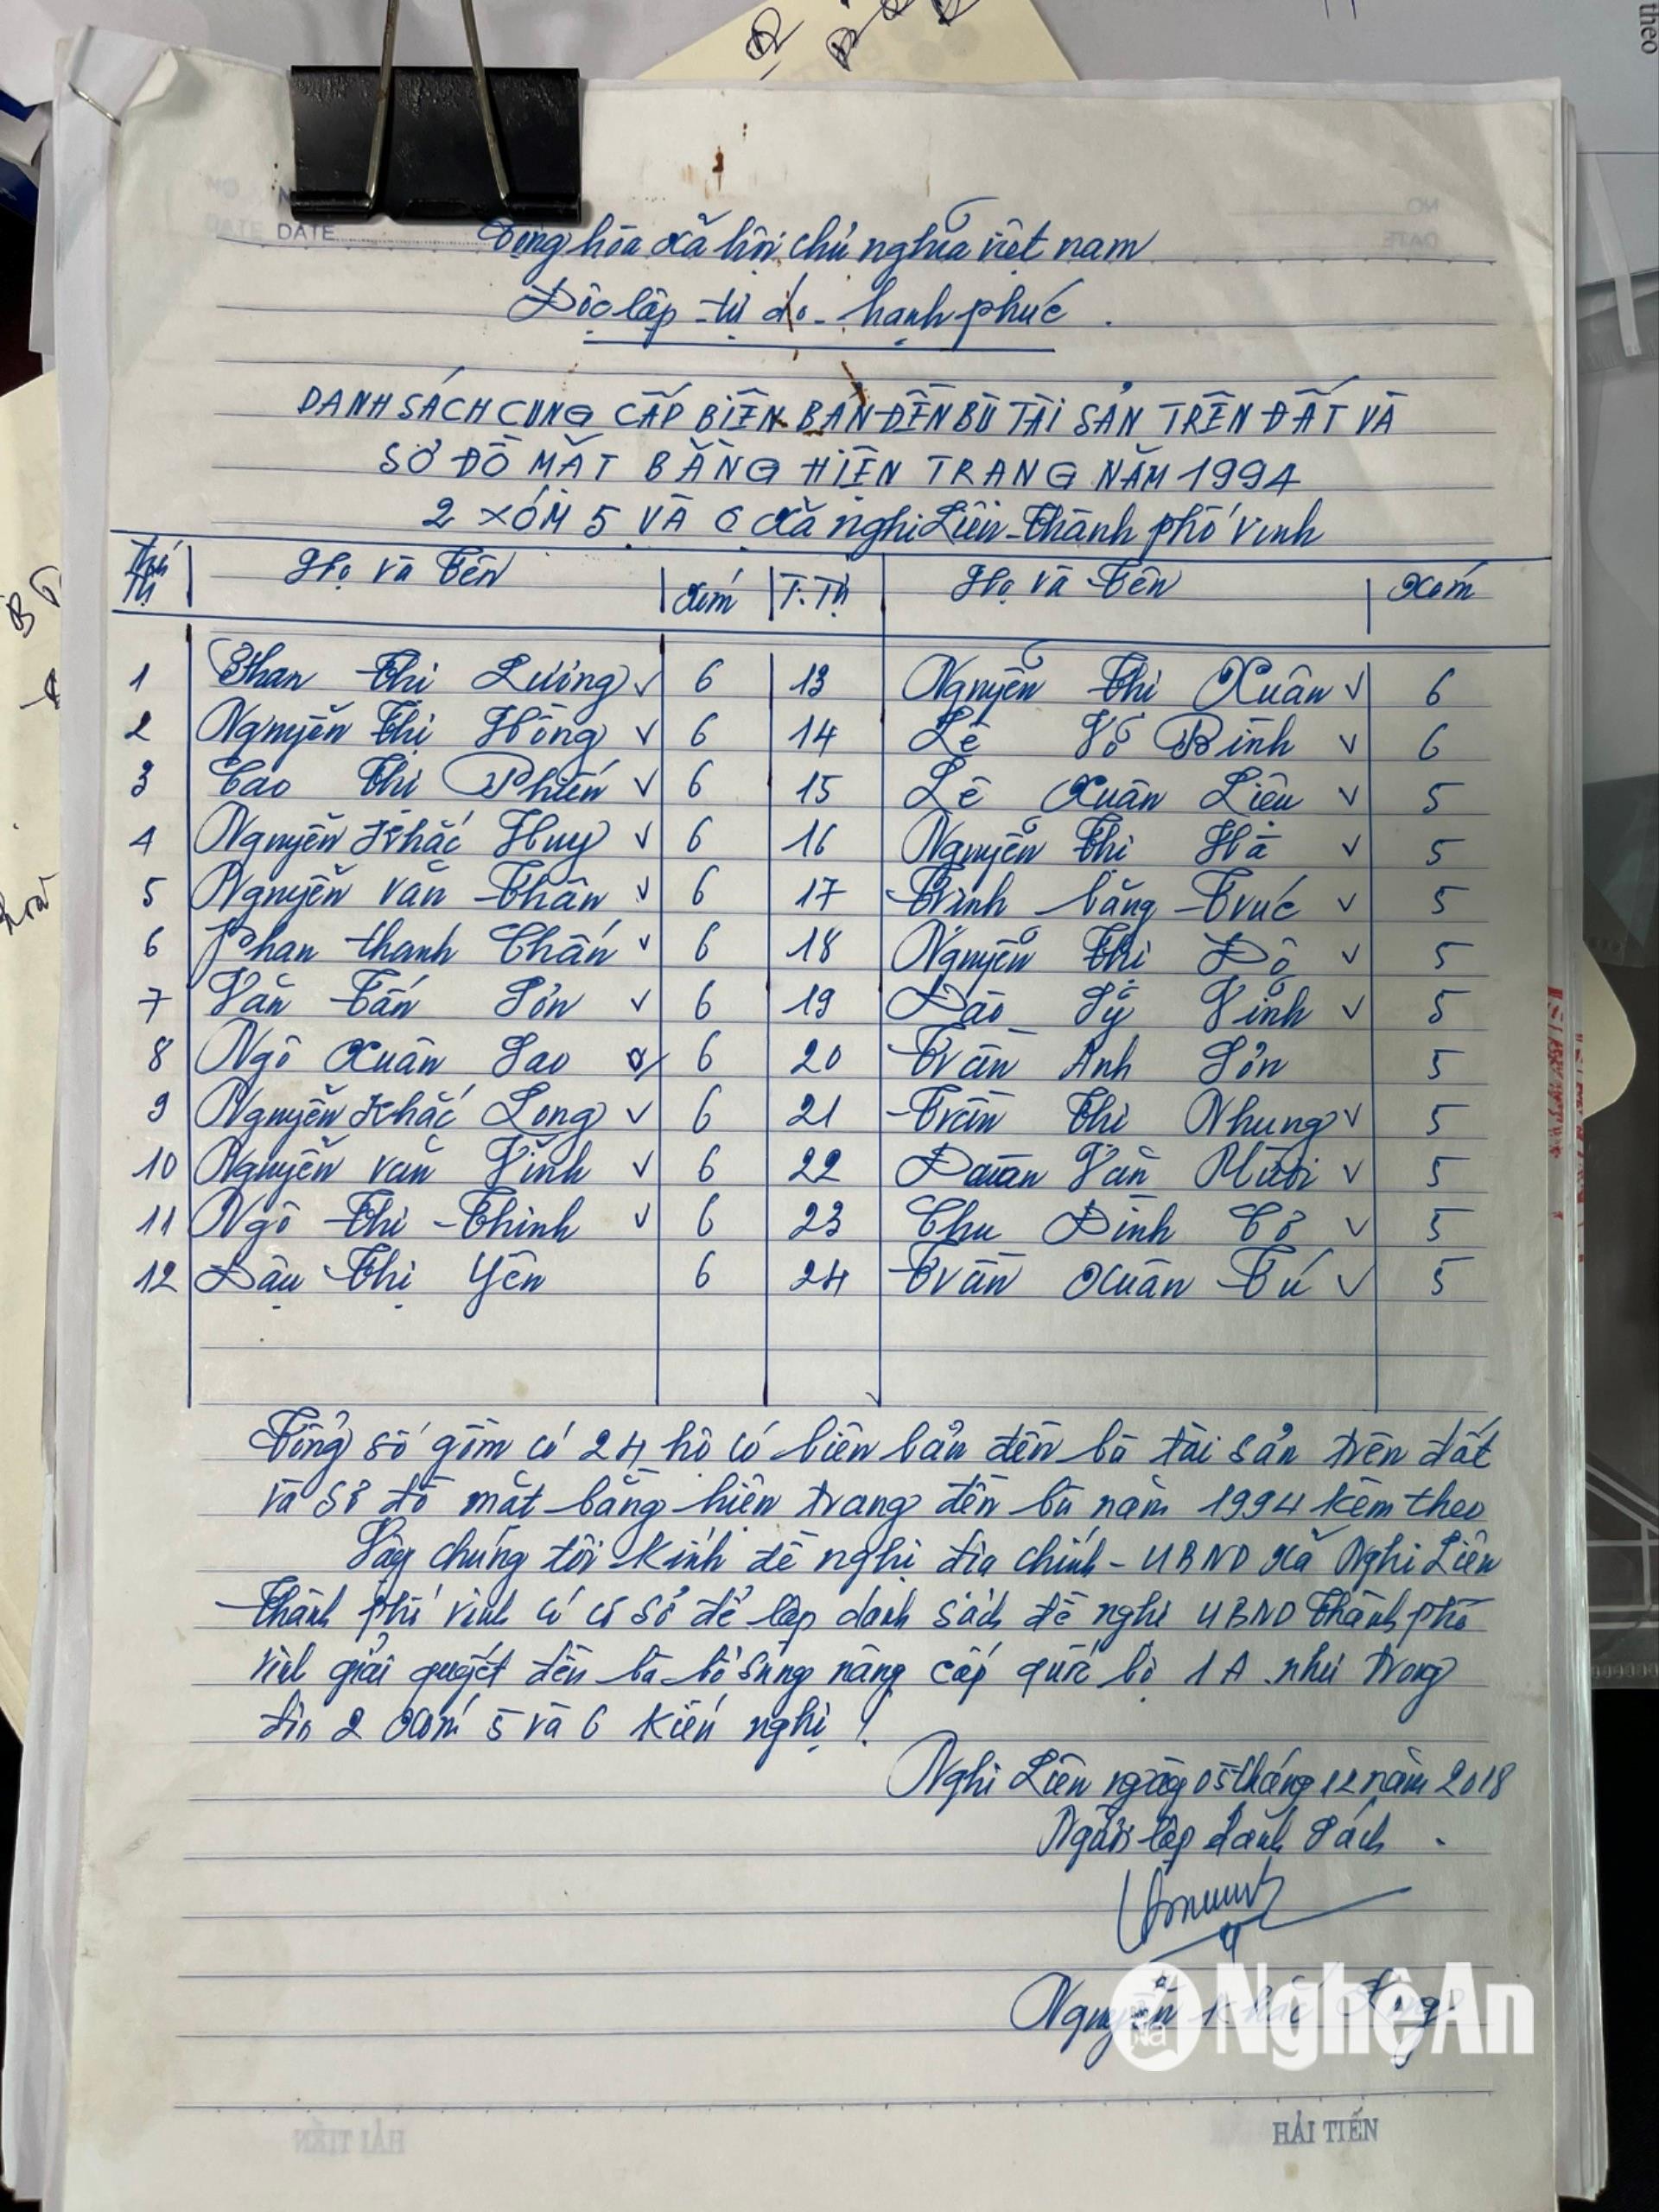 theo
DATE
Cộng hòa xã hội chủ nghĩa việt nam
Độc lập - tự do - hạnh phúc.
DANH SÁCH CUNG CẤP BIÊN BẢN ĐỀN BÙ TÀI SẢN TRÊN ĐẤT VÀ
SƠ ĐỒ MẶT BẰNG HIỆN TRẠNG NĂM 1994
2 XÓM 5 VÀ 6 xã nghi Liên - thành phố vinh
Thứ Tự Họ và tên xóm T.Tự Họ và tên xóm
1 Phan thị Lương 6 13 Nguyễn thị Xuân 6
2 Nguyễn thị Hồng 6 14 Lê Võ Bình 6
3 Cao thị Phiến 6 15 Lê Xuân Liệu 5
4 Nguyễn Khắc Huy 6 16 Nguyễn thị Hà 5
5 Nguyễn văn Thân 6 17 Trịnh bằng Trúc 5
6 Phan thanh Chấn 6 18 Nguyễn thị Độ 5
7 Văn Tấn Sơn 6 19 Đào Sỹ Vinh 5
8 Ngô Xuân Sao 6 20 Trần Anh Sơn 5
9 Nguyễn Khắc Long 6 21 Trần thị Nhung 5
10 Nguyễn văn Vinh 6 22 Đoàn Văn Mười 5
11 Ngô thị Thinh 6 23 Chu Đình Cơ 5
12 Đậu thị Yên 6 24 Trần Xuân Tú 5
Tổng số gồm có 24 hộ có biên bản đền bù tài sản trên đất
và sơ đồ mặt bằng hiện trạng đền bù năm 1994 kèm theo
Vậy chúng tôi kính đề nghị địa chính - UBND xã Nghi Liên
Thành phố vinh có cơ sở để lập danh sách đề nghị UBND thành phố
vinh giải quyết đền bù bổ sung nâng cấp quốc lộ 1A như trong
đơn 2 xóm 5 và 6 kiến nghị!
Nghi Liên ngày 05 tháng 12 năm 2018
Người lập danh sách.
Nguyễn Khắc
NghệAn
HẢI TIẾN